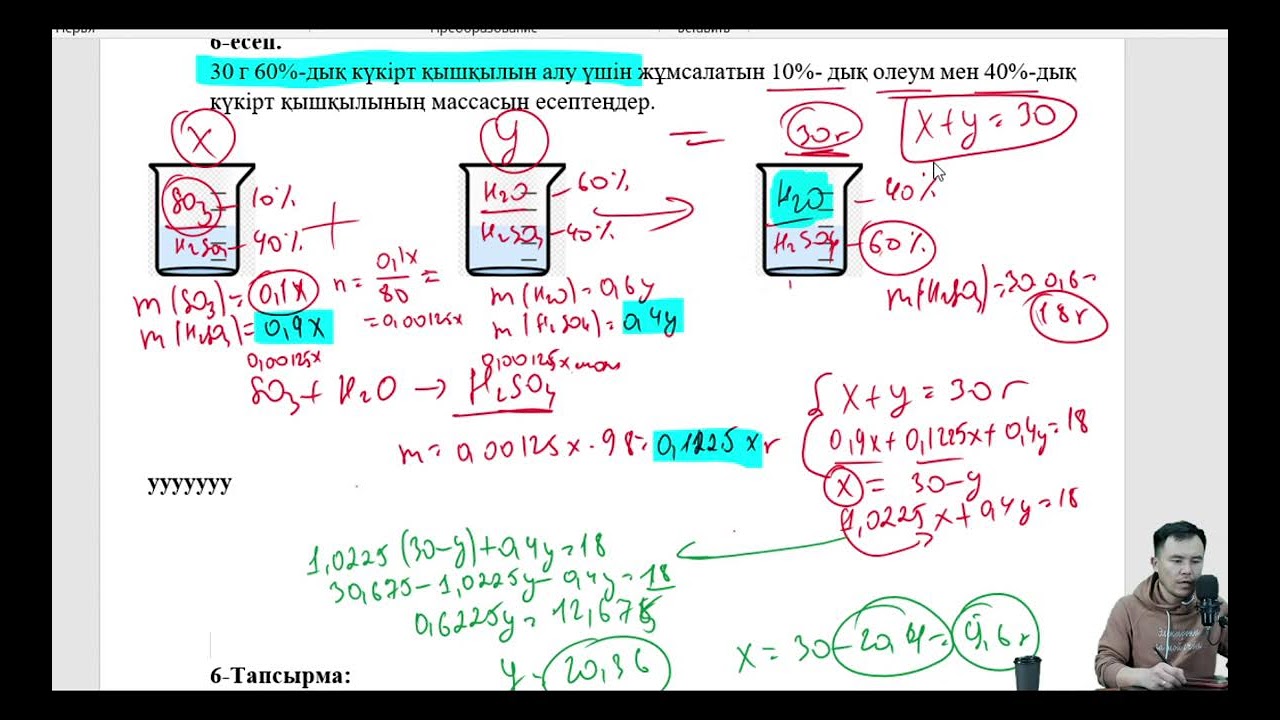 Преобразование
Вставить
6-есеп.
30 г 60%-дық күкірт қышқылын алу үшін жұмсалатын 10%- дық олеум мен 40%-дық
күкірт қышқылының массасын есептеңдер.
x
y
=
30г
x + y = 30
SO3 - 10%
H2SO4 - 90%
+
H2O - 60%
H2SO4 - 40%
H2O - 40%
H2SO4 - 60%
m(SO3) = 0,1x
m(H2SO4) = 0,9x
n = 0,1x / 80 =
= 0,00125x
m(H2O) = 0,6y
m(H2SO4) = 0,4y
m(H2SO4) = 30·0,6 =
18г
0,00125x
0,00125x моль
SO3 + H2O → H2SO4
m = 0,00125x · 98 = 0,1225x г
x + y = 30г
0,9x + 0,1225x + 0,4y = 18
x = 30 - y
1,0225x + 0,4y = 18
ууууууу
1,0225(30-y) + 0,4y = 18
30,675 - 1,0225y - 0,4y = 18
0,6225y = 12,675
y = 20,36
x = 30 - 20,4 = 9,6г
6-Тапсырма: